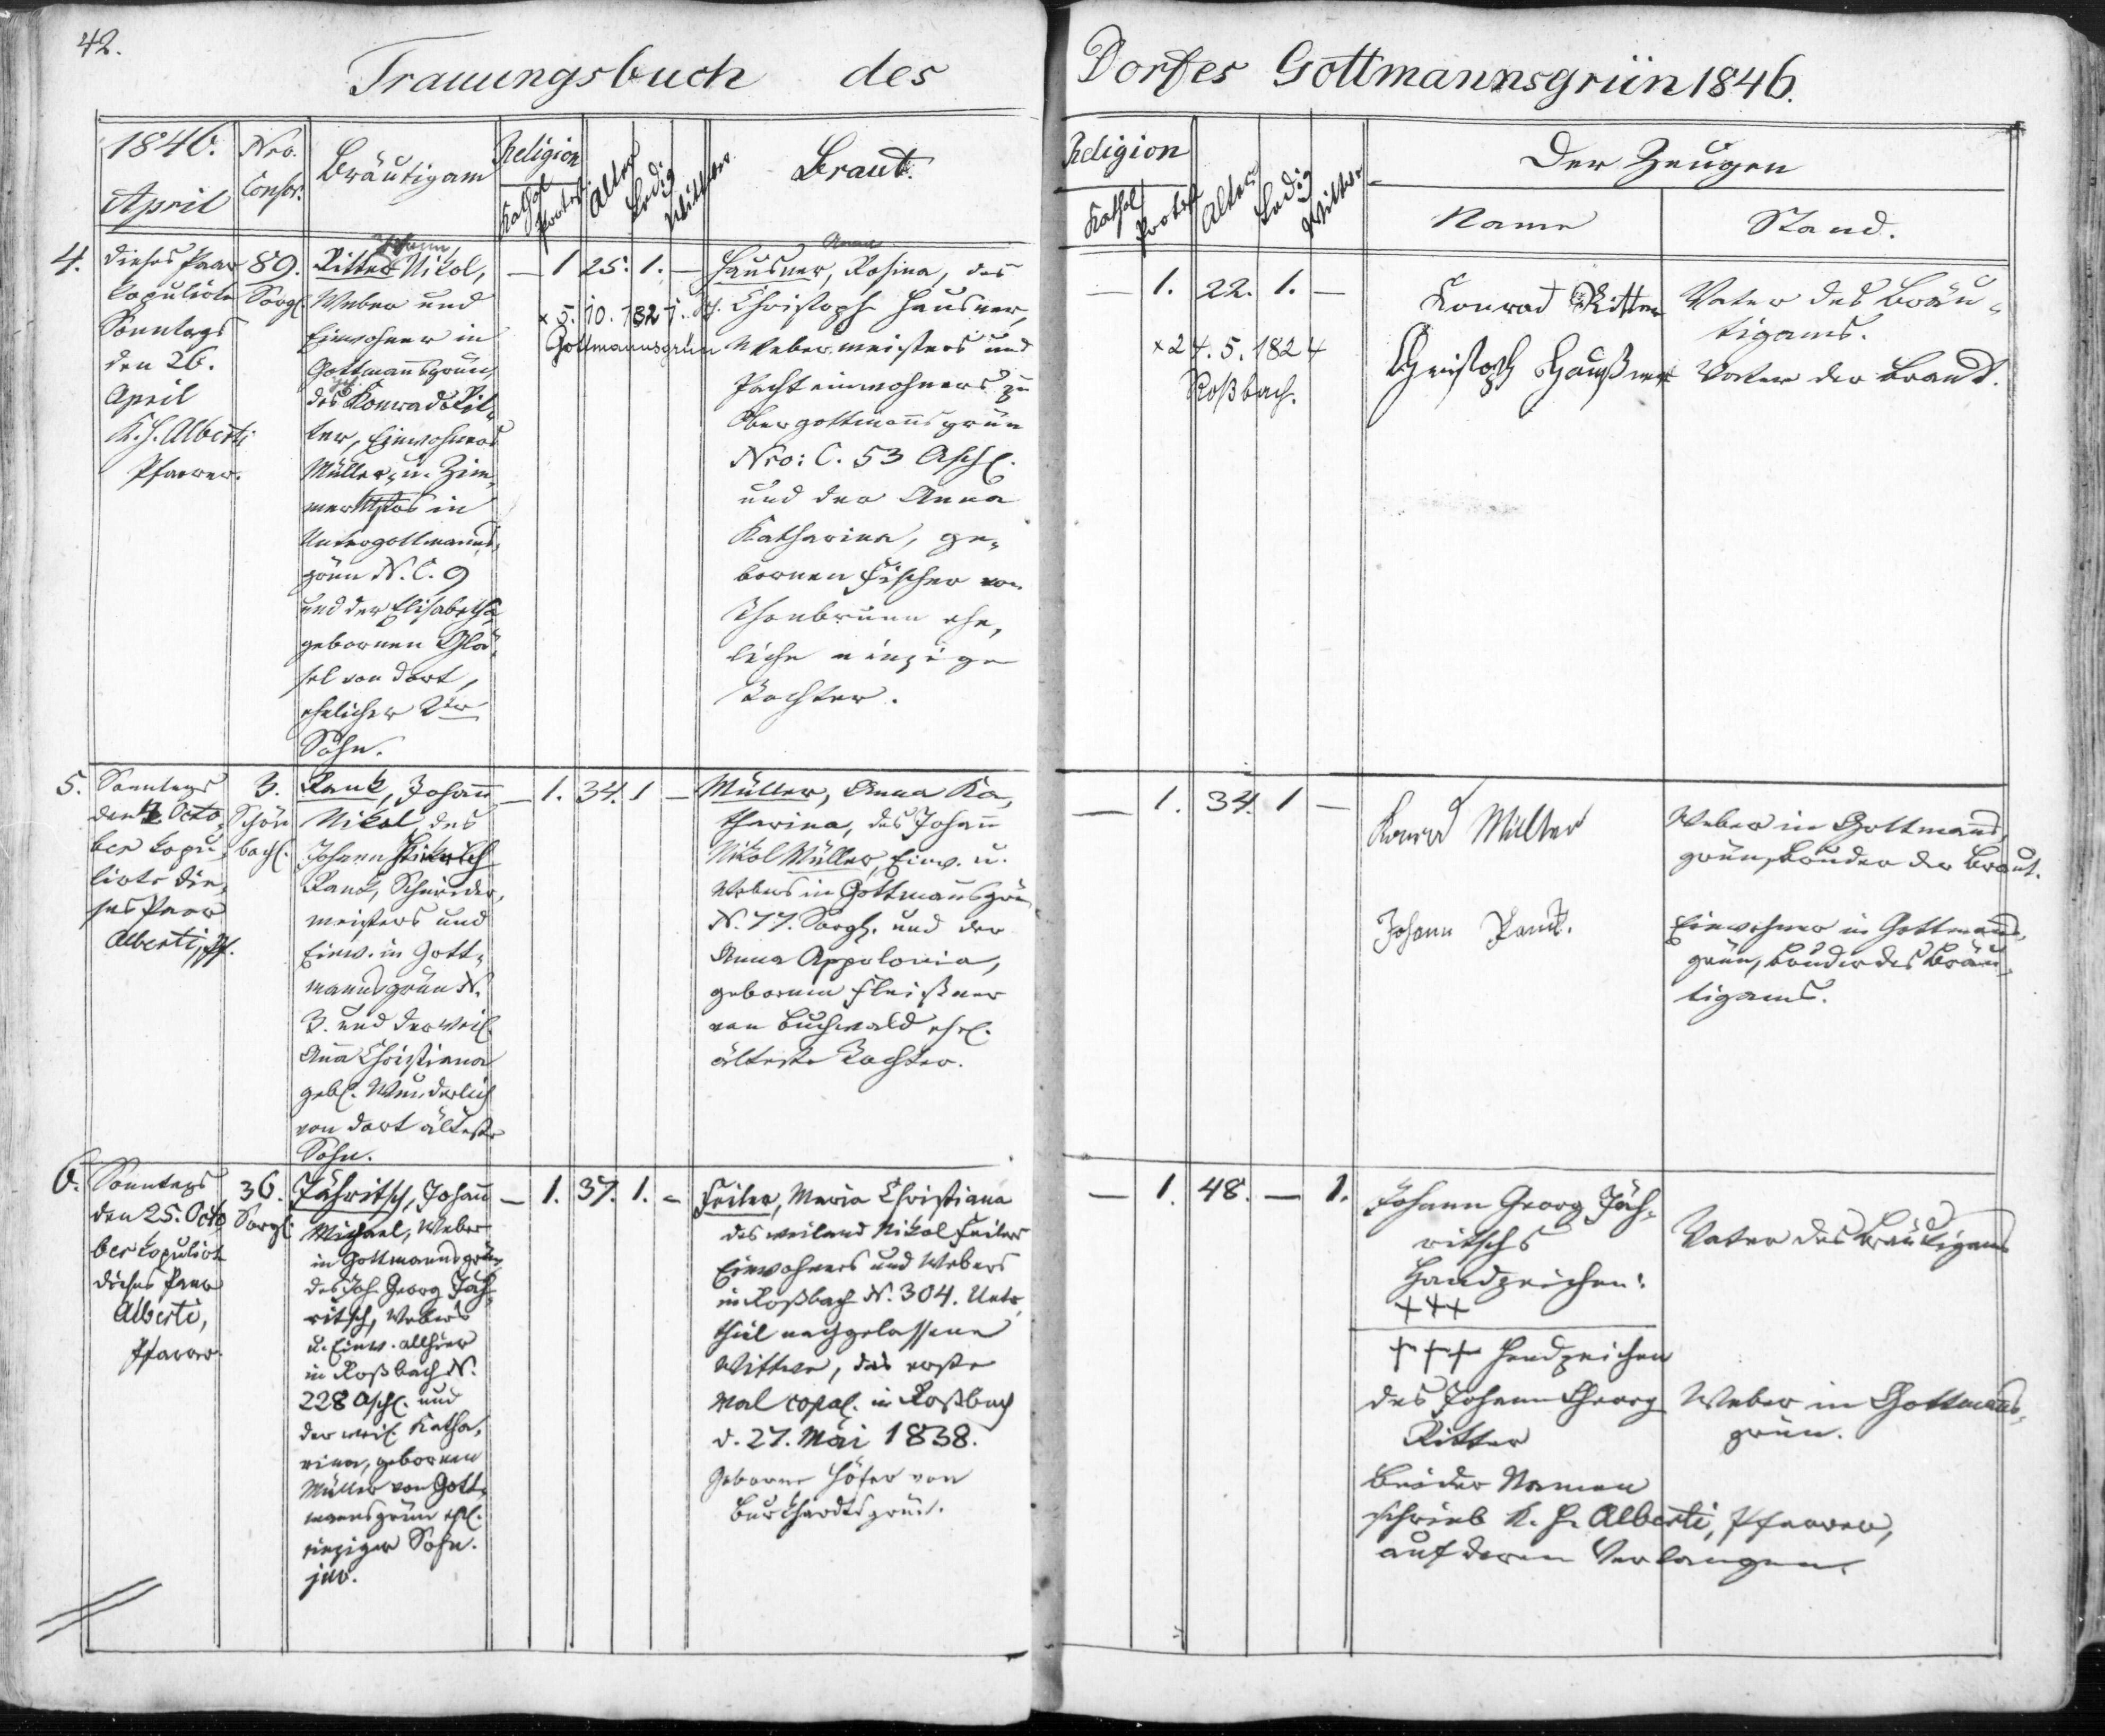 42.
Trauungsbuch des Dorfes Gottmannsgrün 1846.
1846.
April
Nro. Conscr.
Bräutigam
Religion
Kathol
Protest.
Alter
Ledig
Wittwer
Braut.
Religion
Kathol
Protest
Alter
Ledig
Wittwe
Der Zeugen
Name
Stand.
4.
Dieses Paar
kopulirte
Sonntags
den 26.
April
K. H. Alberti
Pfarrer.
89.
Sorg.
Johann
Ritter Nikol,
Weber und
Einwohner in
Gottmannsgrün
des Konrad Rit-
ter, Einwohners
Müller, u. Zim-
mer in
Untergottmanns-
grün N. C. 9
und der Elisabetha
gebornen Glä-
sel von dort,
ehelicher 2ter
Sohn.
— 1 25. 1. —
× 5. 10. 1821.
Gottmannsgrün
Anna
Hausner, Rosina, des
Christoph Hausner,
Webermeisters und
Pachteinwohners zu
Obergottmannsgrün
Nro: C. 53 Asch.
und der Anna
Katharina, ge-
bornen Fischer von
Thonbrunn ehe-
liche einzige
Tochter.
— 1. 22. 1. —
× 24. 5. 1824
Roßbach.
Konrad Ritter
Vater des Bräu-
tigams.
Christoph Haußner
Vater der Braut.
5.
Sonntags
den 4 Octo-
ber kopu-
lirte die-
ses Paar
Alberti, Pf.
3.
Schön
bach.
Rank, Johann
Nikol des
Johann
Rank, Schneider-
meisters und
Einw. in Gott-
mannsgrün N.
3. und der weil.
Anna Christiana
geb. Wunderlich
von dort älteste
Sohn.
— 1. 34. 1 —
Müller, Anna Ka-
tharina, des Johann
Nikol Müller, Einw. u.
Webers in Gottmannsgrün
N. 77. Sorg. und der
Anna Appolonia,
gebornen Fleißner
von Buchwald ehel.
älteste Tochter.
— 1. 34. 1 —
Konrad Müller
Weber in Gottmanns-
grün, Bruder der Braut.
Johann Rank.
Einwohner in Gottmanns-
grün, Bruder des Bräu-
tigams.
6.
Sonntags
den 25. Octo-
ber kopulirte
dieses Paar
Alberti,
Pfarrer.
36.
Sorg.
Jähritsch, Johann
Michael, Weber
in Gottmannsgrün
des Joh. Georg Jäh-
ritsch, Webers
u. Einw. allhier
in Roßbach N.
228 Asch. und
der weil. Katha-
rina, gebornen
Müller von Gott-
mannsgrün ehl.
einziger Sohn.
— 1. 37. 1. —
Feiler, Maria Christiana
des weiland Nikol Feilers
Einwohners und Webers
in Roßbach N. 304. Unter-
theil nachgelassene
Wittwe, das erste
Mal copul. in Roßbach
d. 27. Mai 1838.
Geborne Höfer von
Burkhardtsgrün.
— 1. 48. — 1.
Johann Georg Jäh-
ritschs
Handzeichen:
+++
Vater des Bräutigams
+++ Handzeichen
des Johann Georg
Ritter
Weber in Gottmanns-
grün.
Beider Namen
schrieb K. H. Alberti, Pfarrer,
auf deren Verlangen.